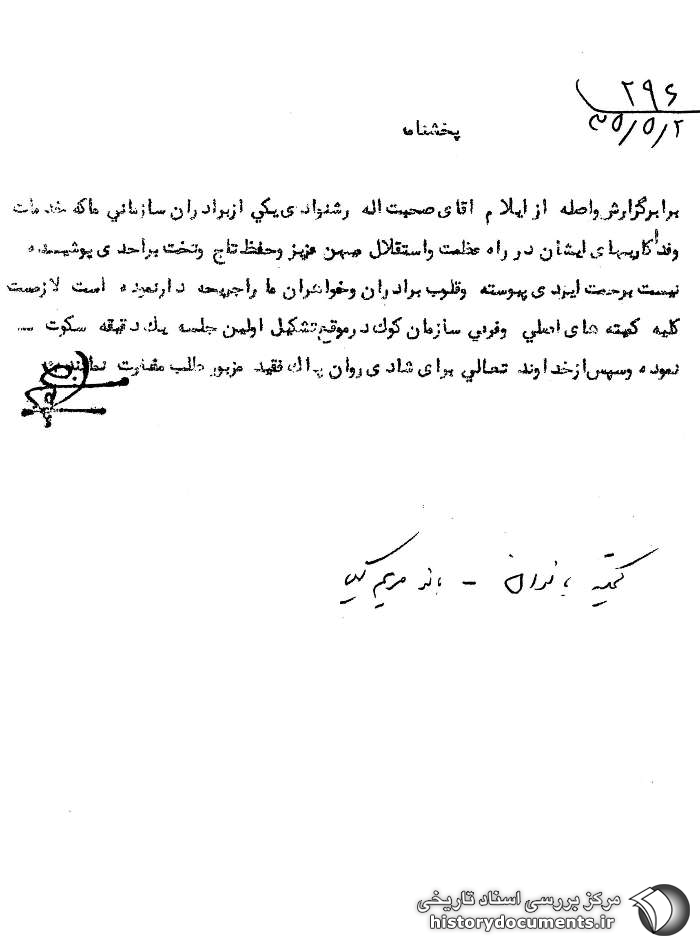 ۲۹۶
۳۵/۵/۲
پخشنامه
برابر گزارش واصله از ایلام آقای صحبت اله رشنوادی یکی از برادران سازمانی ما که خدمات
وفداکاریهای ایشان در راه عظمت واستقلال میهن عزیز وحفظ تاج وتخت براحدی پوشیده
نیست برحمت ایزدی پیوسته وقلوب برادران وخواهران ما را جریحه دار نموده است لازمست
کلیه کمیته های اصلی وفرعی سازمان کوک در موقع تشکیل اولین جلسه یک دقیقه سکوت
نموده وسپس از خداوند تعالی برای شادی روان پاک فقید مزبور طلب مغفرت نمایند
کمیته بانوان - بانو مریم
مرکز بررسی اسناد تاریخی
historydocuments.ir